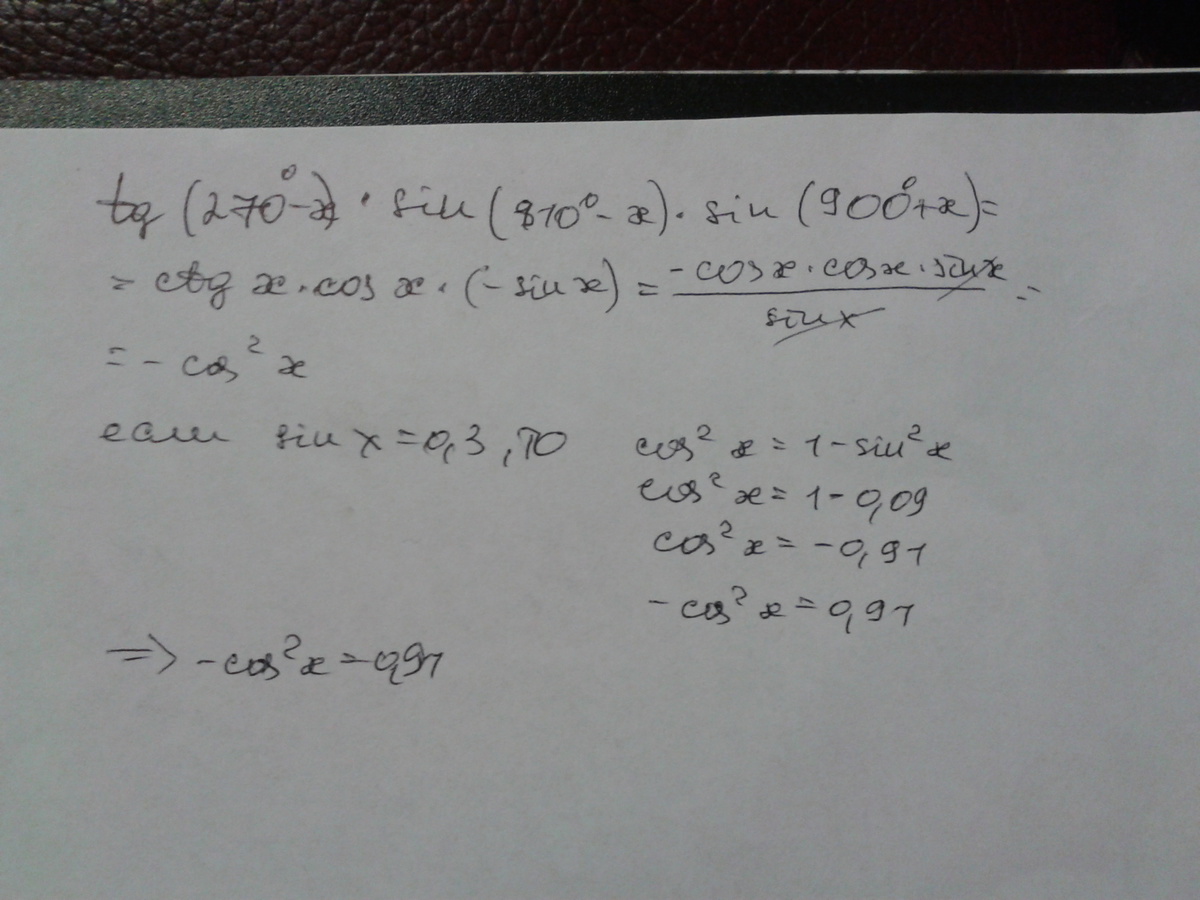 tg (270°-x) · sin (810°-x) · sin (900°+x)=
= ctg x · cos x · (-sin x) = -cos x · cos x · sin x / sin x =
= - cos² x
если sin x = 0,3, то
cos² x = 1 - sin² x
cos² x = 1 - 0,09
cos² x = -0,91
-cos² x = 0,91
=> -cos² x = -0,91